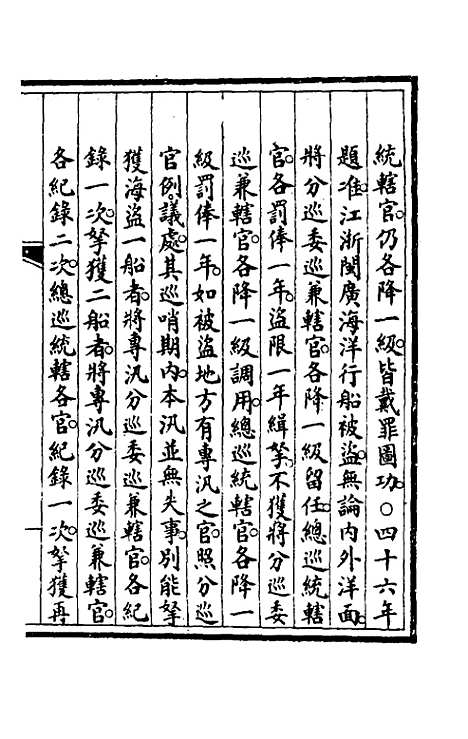 統轄官。仍各降一級。皆戴罪圖功。○四十六年
題准江浙閩廣海洋行船被盜。無論內外洋面。
將分巡委巡兼轄官。各降一級留任。總巡統轄
官。各罰俸一年。盜限一年緝拏。不獲。將分巡委
巡兼轄官。各降一級調用。總巡統轄官。各降一
級罰俸一年。如被盜地方有專汛之官。照分巡
官例。議處。其巡哨期內。本汛並無失事。別能拏
獲海盜一船者。將專汛分巡委巡兼轄官。各紀
錄一次。拏獲二船者。將專汛分巡委巡兼轄官。
各紀錄二次。總巡統轄各官。紀錄一次。拏獲再